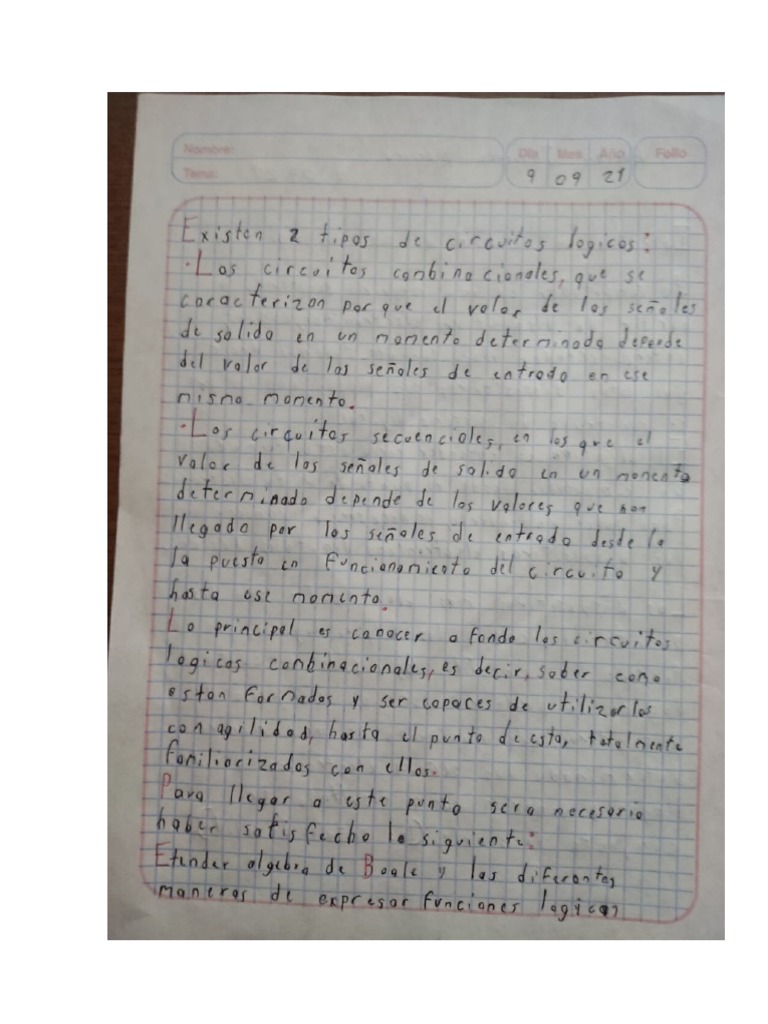 Nombre:
Tema:
Día Mes Año Folio
9 09 21
Existen 2 tipos de circuitos logicos:
·Los circuitos combinacionales, que se
caracterizan por que el valor de las señales
de salida en un momento determinado depende
del valor de las señales de entrada en ese
mismo momento.
·Los circuitos secuenciales, en los que el
valor de las señales de salida en un momento
determinado depende de los valores que han
llegado por las señales de entrada desde la
la puesta en funcionamiento del circuito y
hasta ese momento.
Lo principal es conocer a fondo los circuitos
logicos combinacionales, es decir, saber como
estan formados y ser capaces de utilizarlos
con agilidad, hasta el punto de esta, totalmente
familiarizados con ellos.
Para llegar a este punto sera necesario
haber satisfecho lo siguiente:
Etender algebra de Boole y las diferentes
maneras de expresar funciones logicas